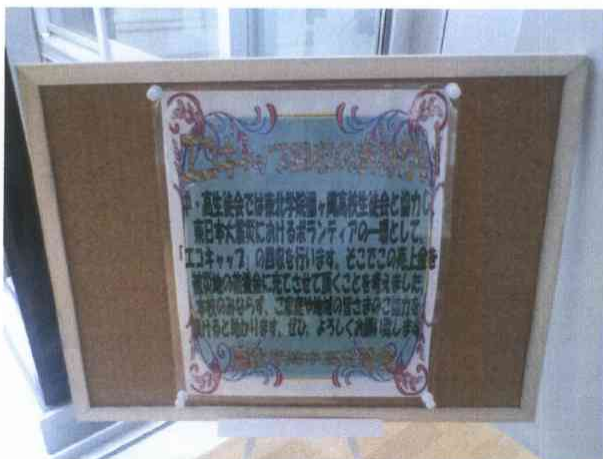 エコキャップ回収のお願い
中・高生徒会では東北学院榴ヶ岡高校生徒会と協力し、
東日本大震災におけるボランティアの一環として、
「エコキャップ」の回収を行います。そこでこの売上金を
被災地の支援金に充てさせて頂くことを考えました。
本校のみならず、ご家庭や地域の皆さまのご協力を
頂けると助かります。ぜひ、よろしくお願い致します。